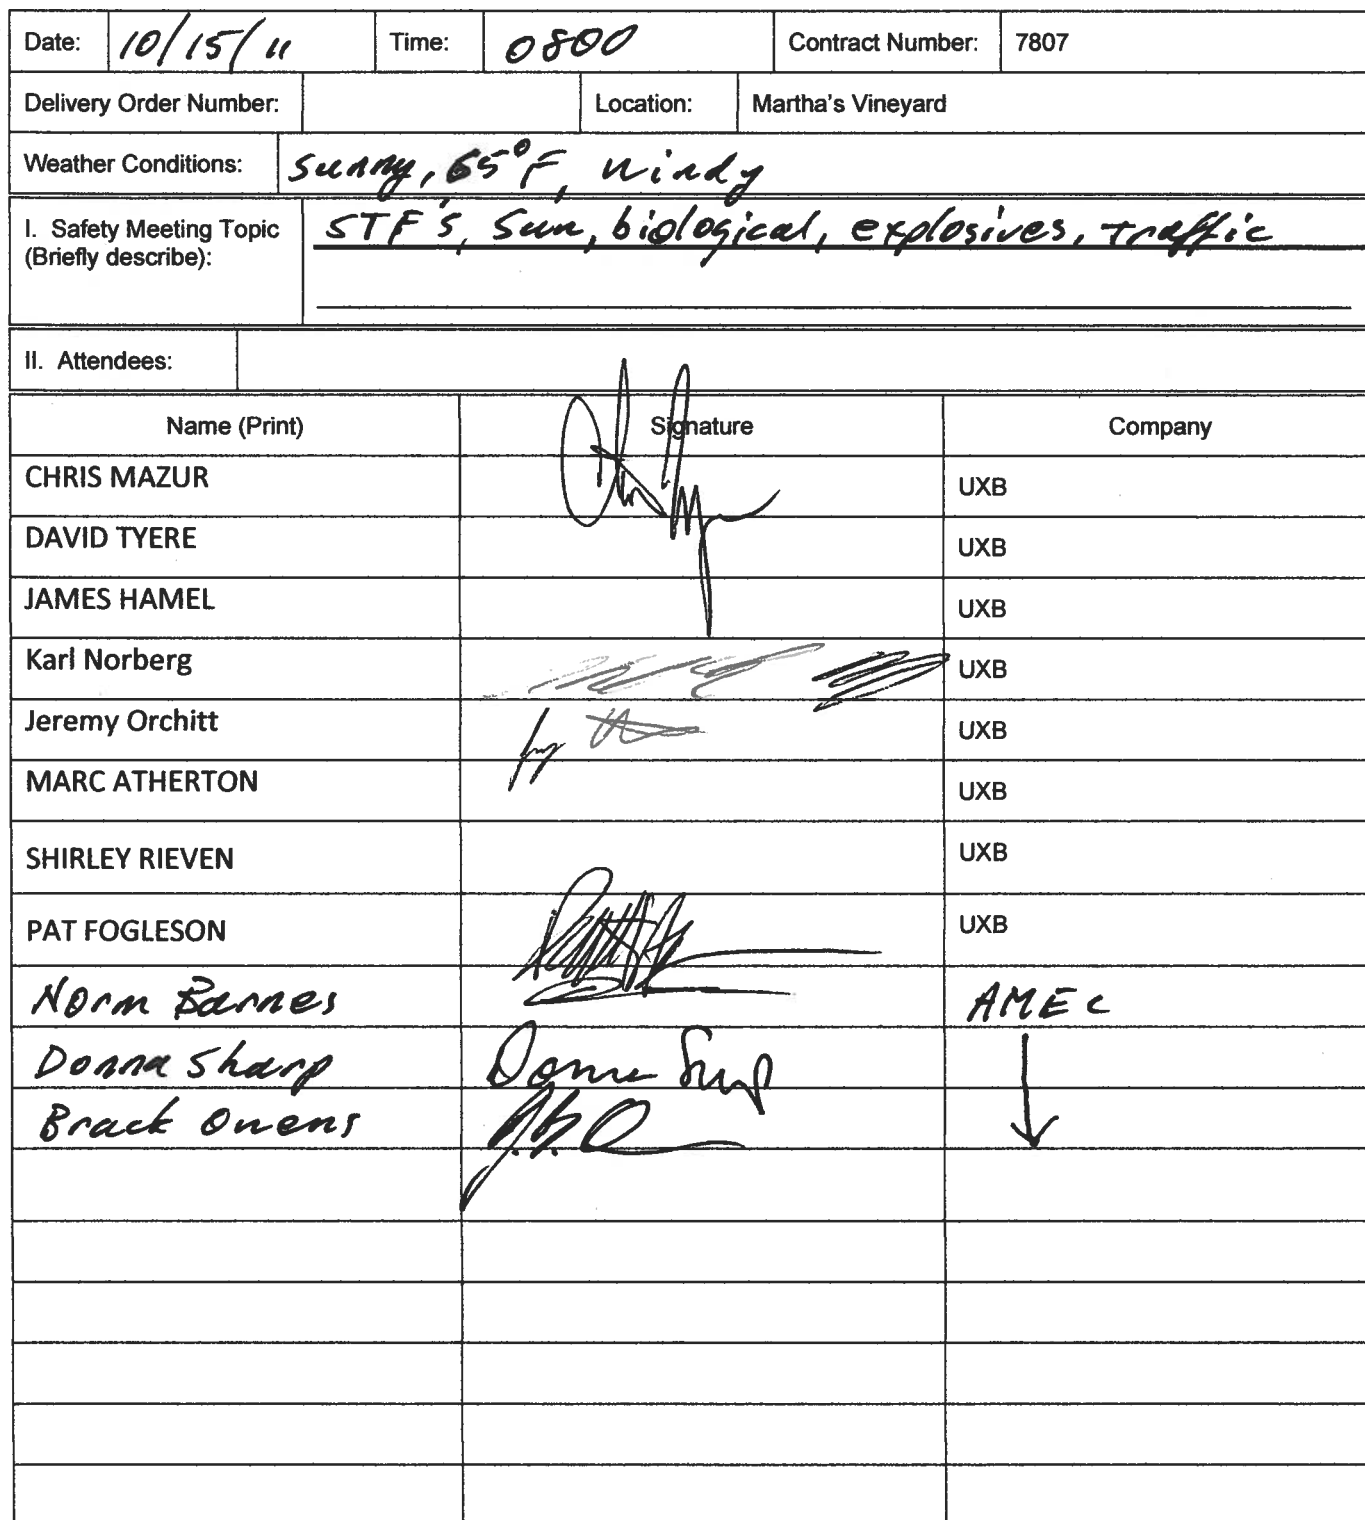 Date: 10/15/11 Time: 0800 Contract Number: 7807
Delivery Order Number: Location: Martha's Vineyard
Weather Conditions: Sunny, 65°F, Windy
I. Safety Meeting Topic STF's, Sun, biological, explosives, traffic
(Briefly describe):
II. Attendees:
Name (Print) Signature Company
CHRIS MAZUR UXB
DAVID TYERE UXB
JAMES HAMEL UXB
Karl Norberg UXB
Jeremy Orchitt UXB
MARC ATHERTON UXB
SHIRLEY RIEVEN UXB
PAT FOGLESON UXB
Norm Barnes AMEC
Donna Sharp Donna Sharp
Brack Owens